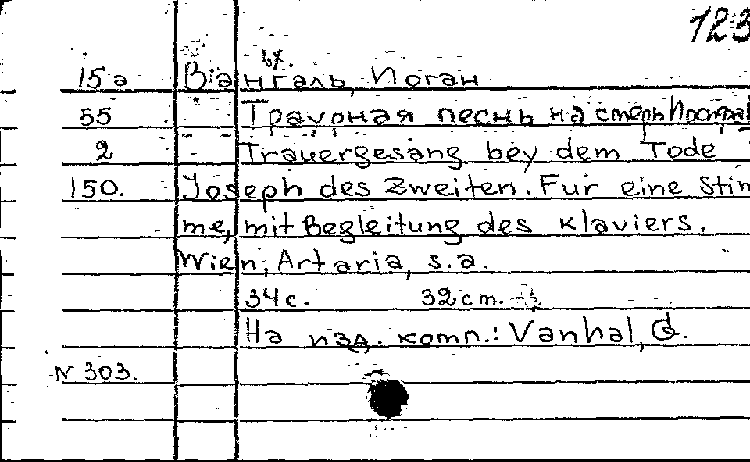 123
15а Віангаль, Иоган
55 Траурная песнь на смерть
2 Trauergesang bey dem Tode
150. Joseph des Zweiten. Fur eine Stim
me, mit Begleitung des Klaviers.
Wien, Artaria, s.a.
34 с. 32 cm.
На изд. комп.: Vanhal, G.
N 303.